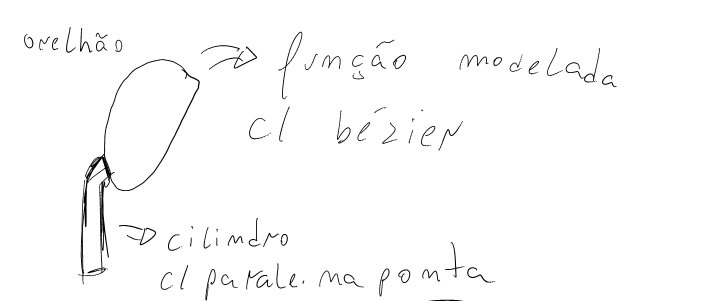 orelhão
função modelada
c/ bézier
cilindro
c/ parale. na ponta